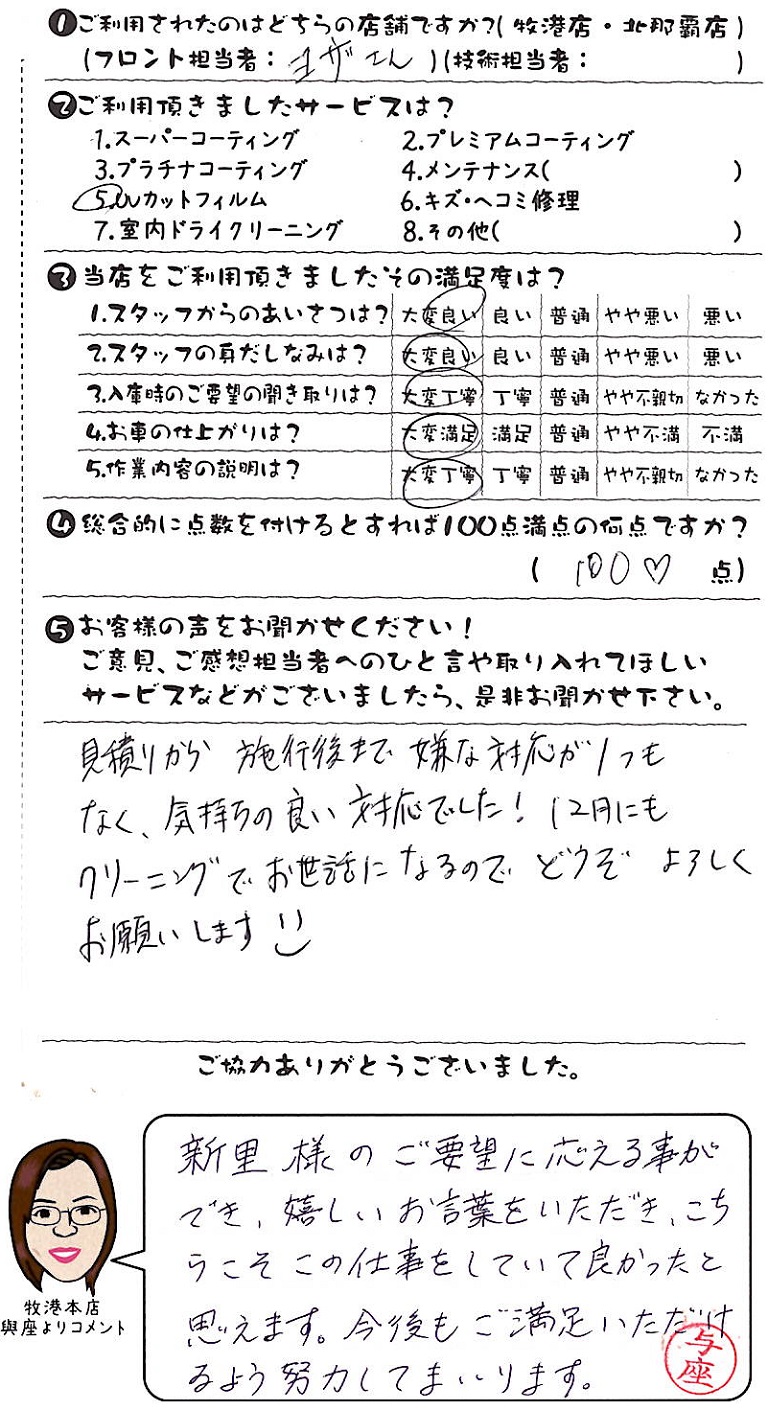 ❶ご利用されたのはどちらの店舗ですか?(牧港店・北那覇店)
(フロント担当者:ヨザさん)(技術担当者: )
❷ご利用頂きましたサービスは?
1.スーパーコーティング 2.プレミアムコーティング
3.プラチナコーティング 4.メンテナンス( )
5.UVカットフィルム 6.キズ・ヘコミ修理
7.室内ドライクリーニング 8.その他( )
❸当店をご利用頂きましたその満足度は?
1.スタッフからのあいさつは? 大変良い 良い 普通 やや悪い 悪い
2.スタッフの身だしなみは? 大変良い 良い 普通 やや悪い 悪い
3.入庫時のご要望の聞き取りは? 大変丁寧 丁寧 普通 やや不親切 なかった
4.お車の仕上がりは? 大変満足 満足 普通 やや不満 不満
5.作業内容の説明は? 大変丁寧 丁寧 普通 やや不親切 なかった
❹総合的に点数を付けるとすれば100点満点の何点ですか?
( 100♡ 点)
❺お客様の声をお聞かせください!
ご意見、ご感想担当者へのひと言や取り入れてほしい
サービスなどがございましたら、是非お聞かせ下さい。
見積りから 施行後まで 嫌な対応が1つも
なく、気持ちの良い対応でした! 12月にも
クリーニングでお世話になるので どうぞ よろしく
お願いします
ご協力ありがとうございました。
新里様のご要望に応える事が
でき、嬉しいお言葉をいただき、こち
らこそこの仕事をしていて良かったと
思えます。今後もご満足いただけ
るよう努力してまいります。
牧港本店
與座よりコメント
与座